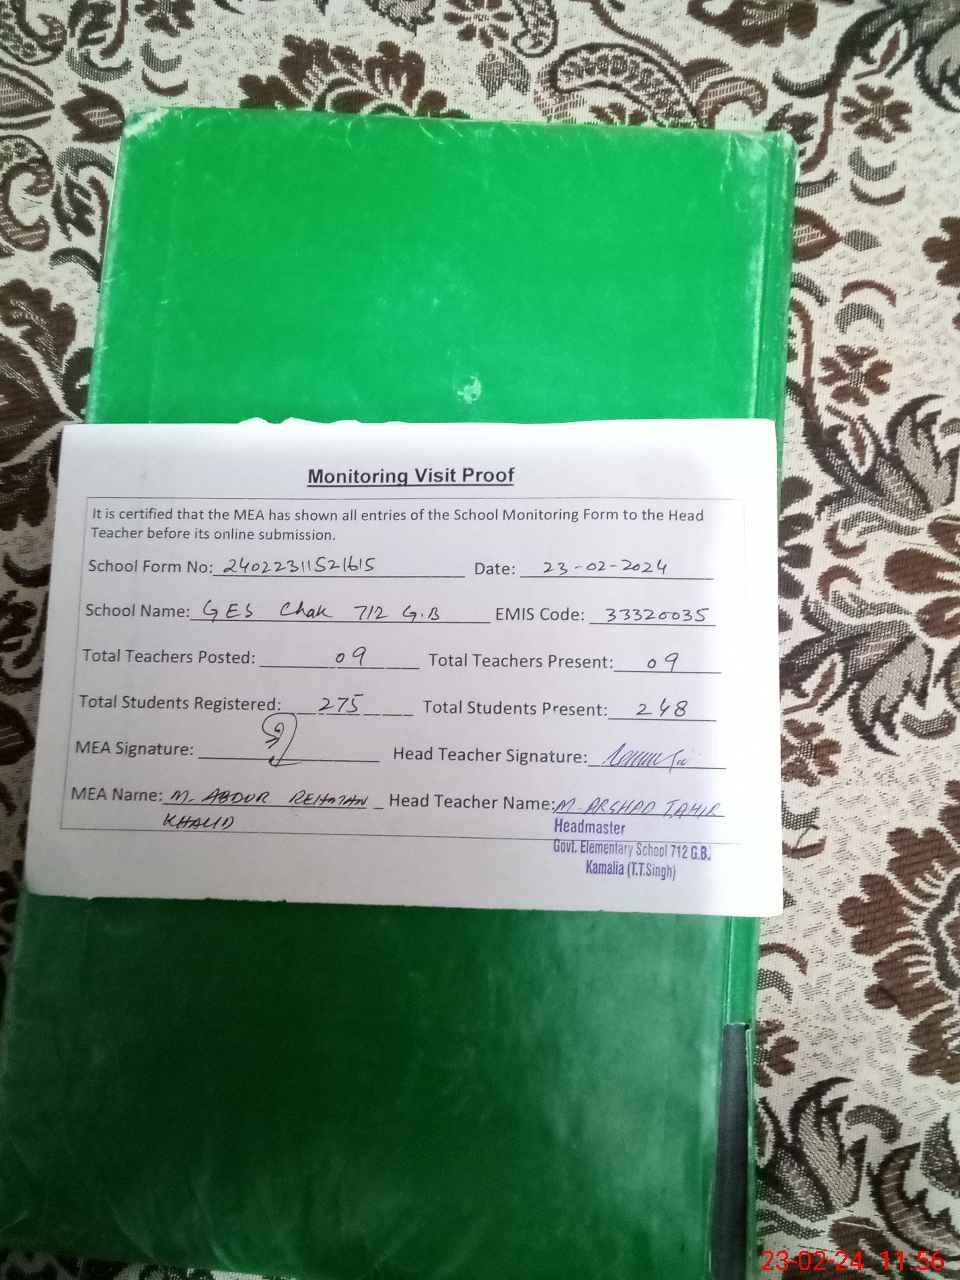 Monitoring Visit Proof
It is certified that the MEA has shown all entries of the School Monitoring Form to the Head
Teacher before its online submission.
School Form No: 24022311521615 Date: 23-02-2024
School Name: GES Chak 712 G.B EMIS Code: 33320035
Total Teachers Posted: 09 Total Teachers Present: 09
Total Students Registered: 275 Total Students Present: 248
MEA Signature: Head Teacher Signature:
MEA Name: M. ABDUR REHMAN Head Teacher Name: M. ARSHAD TAHIR
KHALID
Headmaster
Govt. Elementary School 712 G.B.
Kamalia (T.T.Singh)
23-02-24 11:56